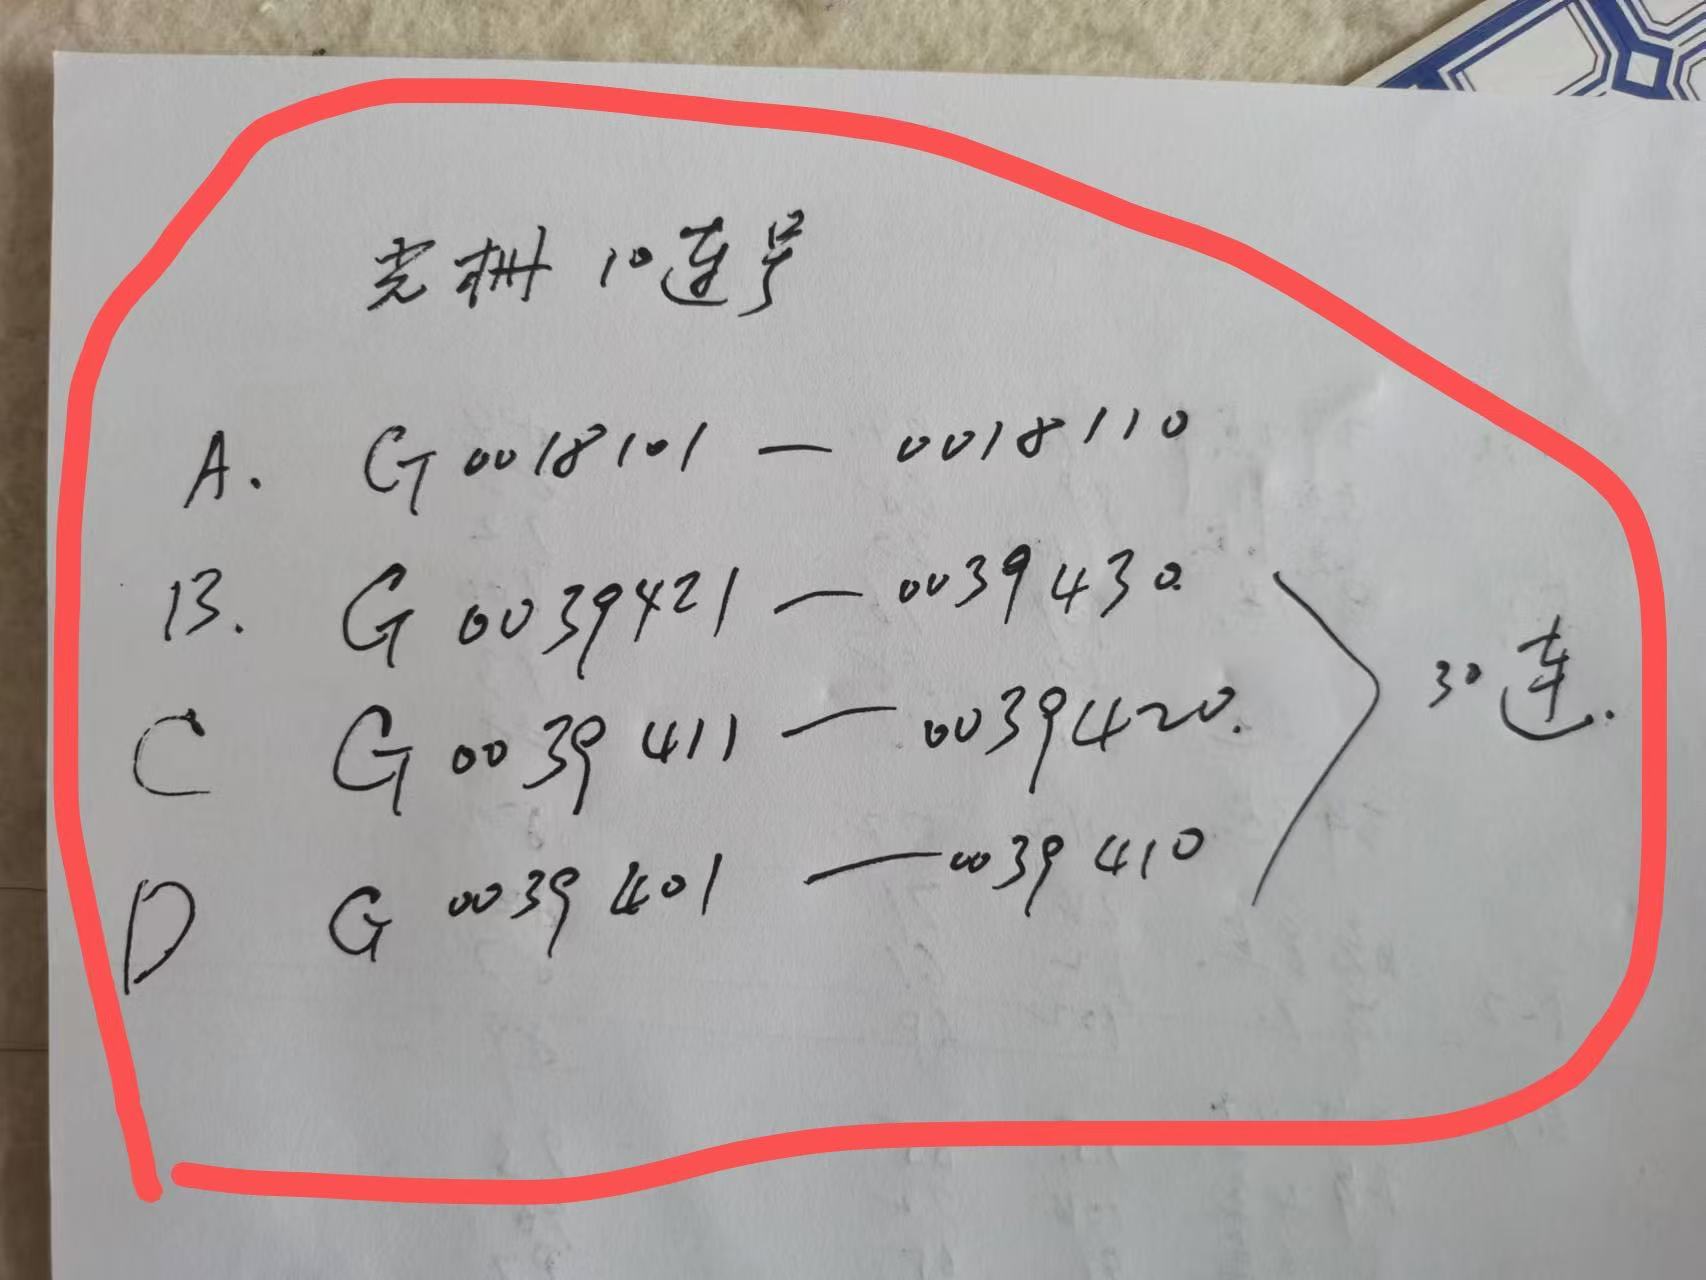 光栅10连号
A. G0018101 — 0018110
B. G0039421 — 0039430.
C G0039411 — 0039420.
30连.
D G0039401 — 0039410